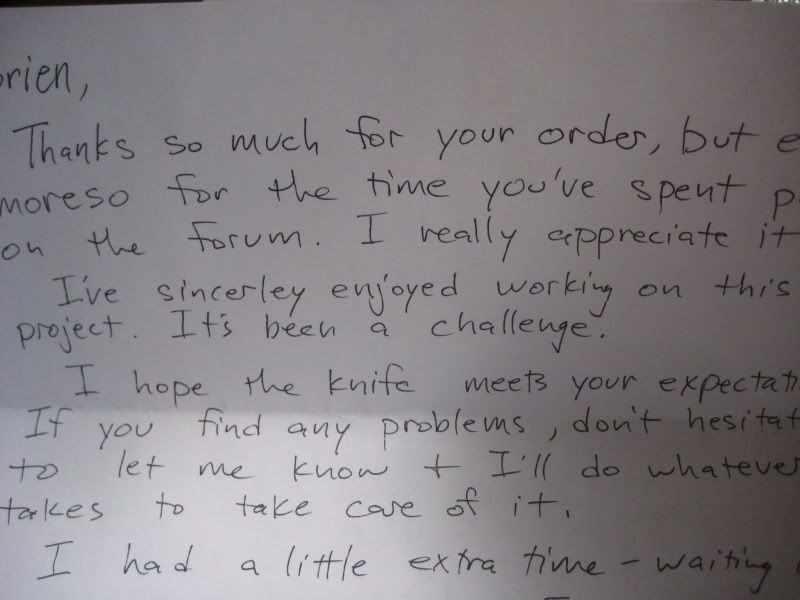 orien,
Thanks so much for your order, but e
moreso for the time you've spent p
on the forum. I really appreciate it
I've sincerley enjoyed working on this
project. It's been a challenge.
I hope the knife meets your expectati
If you find any problems, don't hesitat
to let me know + I'll do whatever
takes to take care of it.
I had a little extra time - waiting